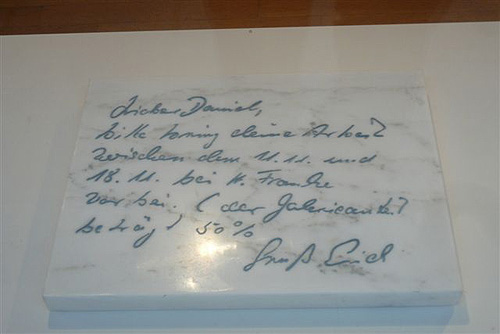 Lieber Daniel,
bitte bring deine Arbeit
zwischen dem 11.11. und
18.11. bei K. Franke
vorbei. (der Galerieanteil
beträgt 50%
Gruß Erich